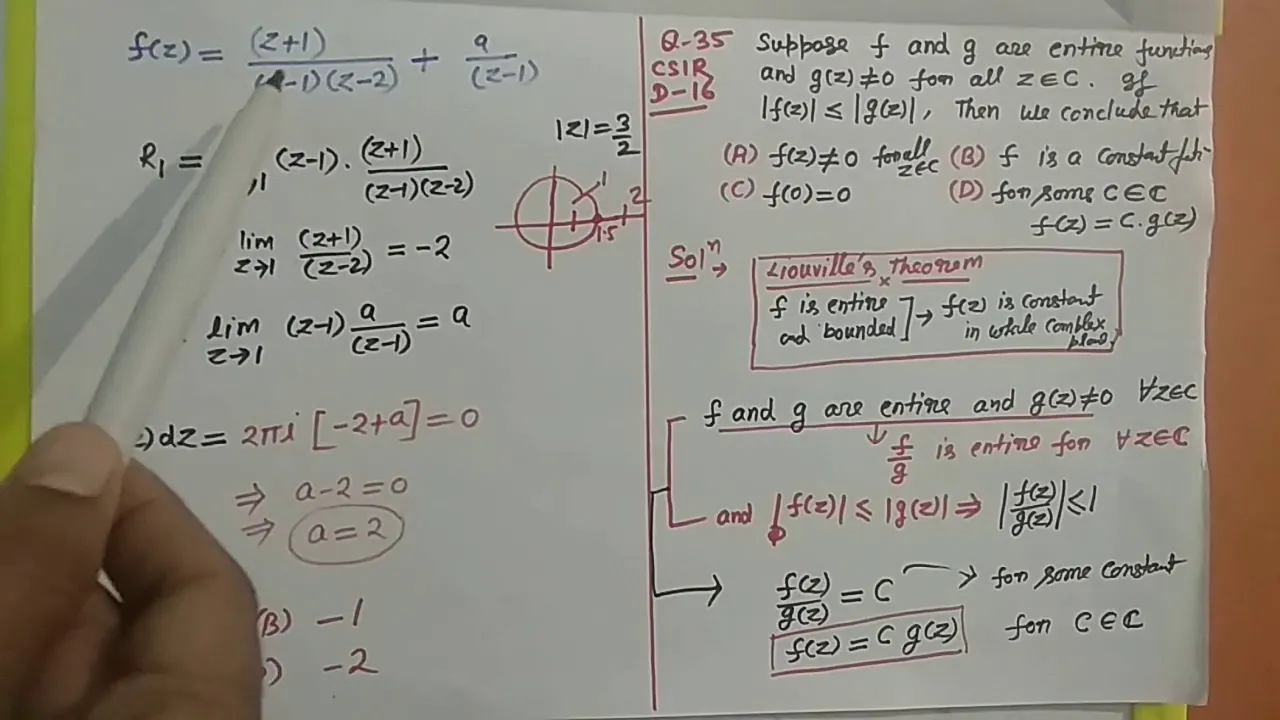 f(z) = (z+1) / (z-1)(z-2) + a / (z-1)
|z| = 3/2
R₁ = (z-1) . (z+1) / (z-1)(z-2)
,1
1
2
1.5
lim z→1 (z+1) / (z-2) = -2
lim z→1 (z-1) a / (z-1) = a
)dz = 2πi [-2+a] = 0
⇒ a-2 = 0
⇒ a = 2
(B) -1
) -2
Q-35 Suppose f and g are entire functions
CSIR and g(z) ≠ 0 for all z ∈ ℂ. If
D-16 |f(z)| ≤ |g(z)|, Then we conclude that
(A) f(z) ≠ 0 for all z∈ℂ (B) f is a constant fctn
(C) f(0) = 0 (D) for some C ∈ ℂ
f(z) = C. g(z)
Solⁿ →
Liouville's Theorem
f is entire ] → f(z) is constant
ad bounded in whole complex
f and g are entire and g(z) ≠ 0 ∀z∈ℂ
↓ f/g is entire for ∀z∈ℂ
and |f(z)| ≤ |g(z)| ⇒ |f(z)/g(z)| ≤ 1
f(z)/g(z) = C → for some constant
f(z) = C g(z) for C ∈ ℂ